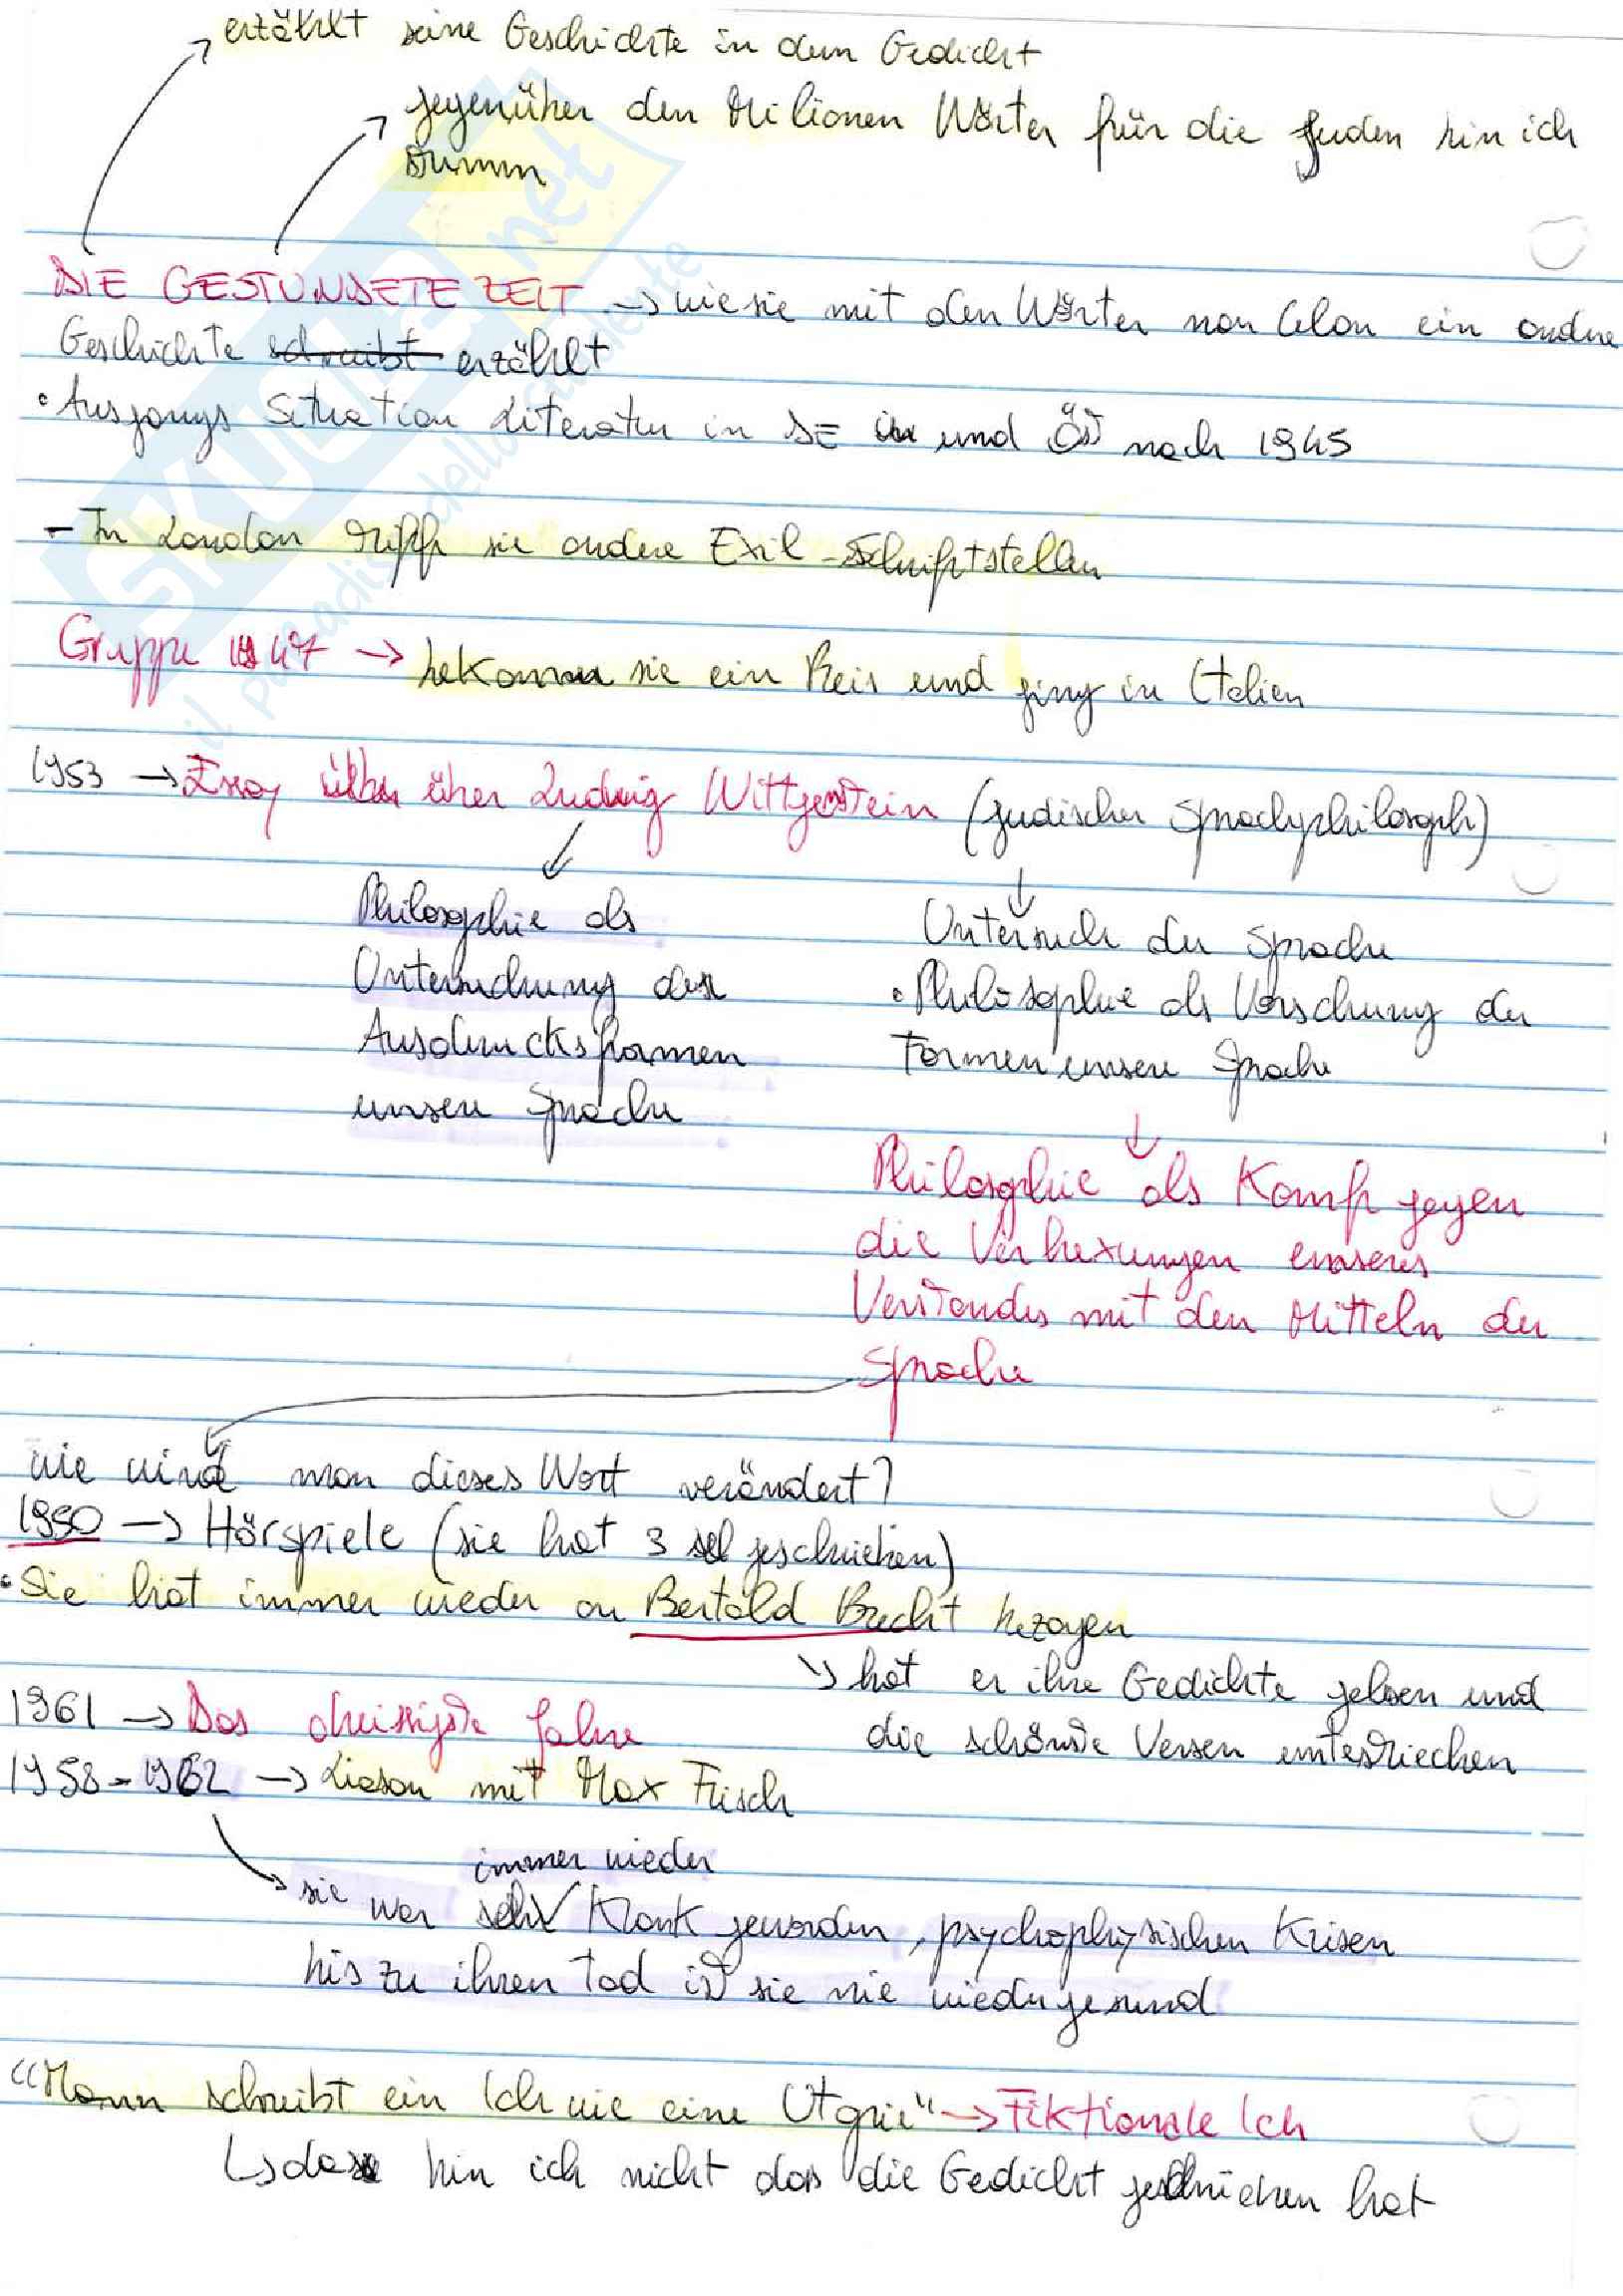 erzählt seine Geschichte in dem Gedicht
gegenüber den Milionen Wörter für die Juden bin ich
Dumm
DIE GESTUNDETE ZEIT → wie sie mit den Wörter von Celan ein andre
Geschichte schreibt erzählt
• Ausgangs Situation Literatur in DE und ÖST nach 1945
- In London triff sie andere Exil-Schriftsteller
Gruppe 47 → bekommen sie ein Preis und ging in Italien
1953 → Essay über Ludwig Wittgenstein (judischer Sprachphilosoph)
Philosophie als
Untersuchung der
Ausdrucksformen
unsere Sprache
Untersuch der Sprache
• Philosophie als Vorschung der
Formen unsere Sprache
Philosophie als Kampf gegen
die Verhexungen unseres
Verstandes mit den Mitteln der
Sprache
wie wird man dieses Wort verändert?
1950 → Hörspiele (sie hat 3 geschrieben)
• Sie hat immer wieder an Bertold Brecht bezogen
↘ hat er ihre Gedichte gelesen und
die schönste Versen unterstriechen
1961 → Das dreissigste Jahre
1958-1962 → Liason mit Max Frisch
immer wieder
sie war sehr Krank geworden, psychophysischen Krisen
bis zu ihren Tod ist sie nie wieder gesund
"Mann schreibt ein Ich wie eine Utopie" → Fiktionale Ich
↳ das bin ich nicht das die Gedicht geschrieben hat
SKUOLA.net
il paradiso dello studente